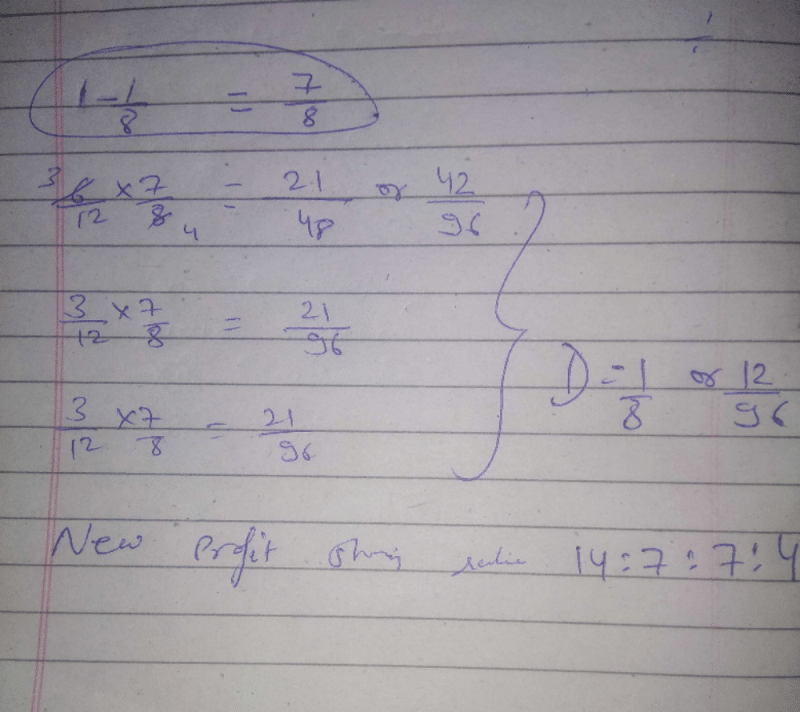 1 - 1/8 = 7/8
3 6/12 × 7/8 4 = 21/48 or 42/96
3/12 × 7/8 = 21/96
D = 1/8 or 12/96
3/12 × 7/8 = 21/96
New Profit sharing ratio 14:7:7:4